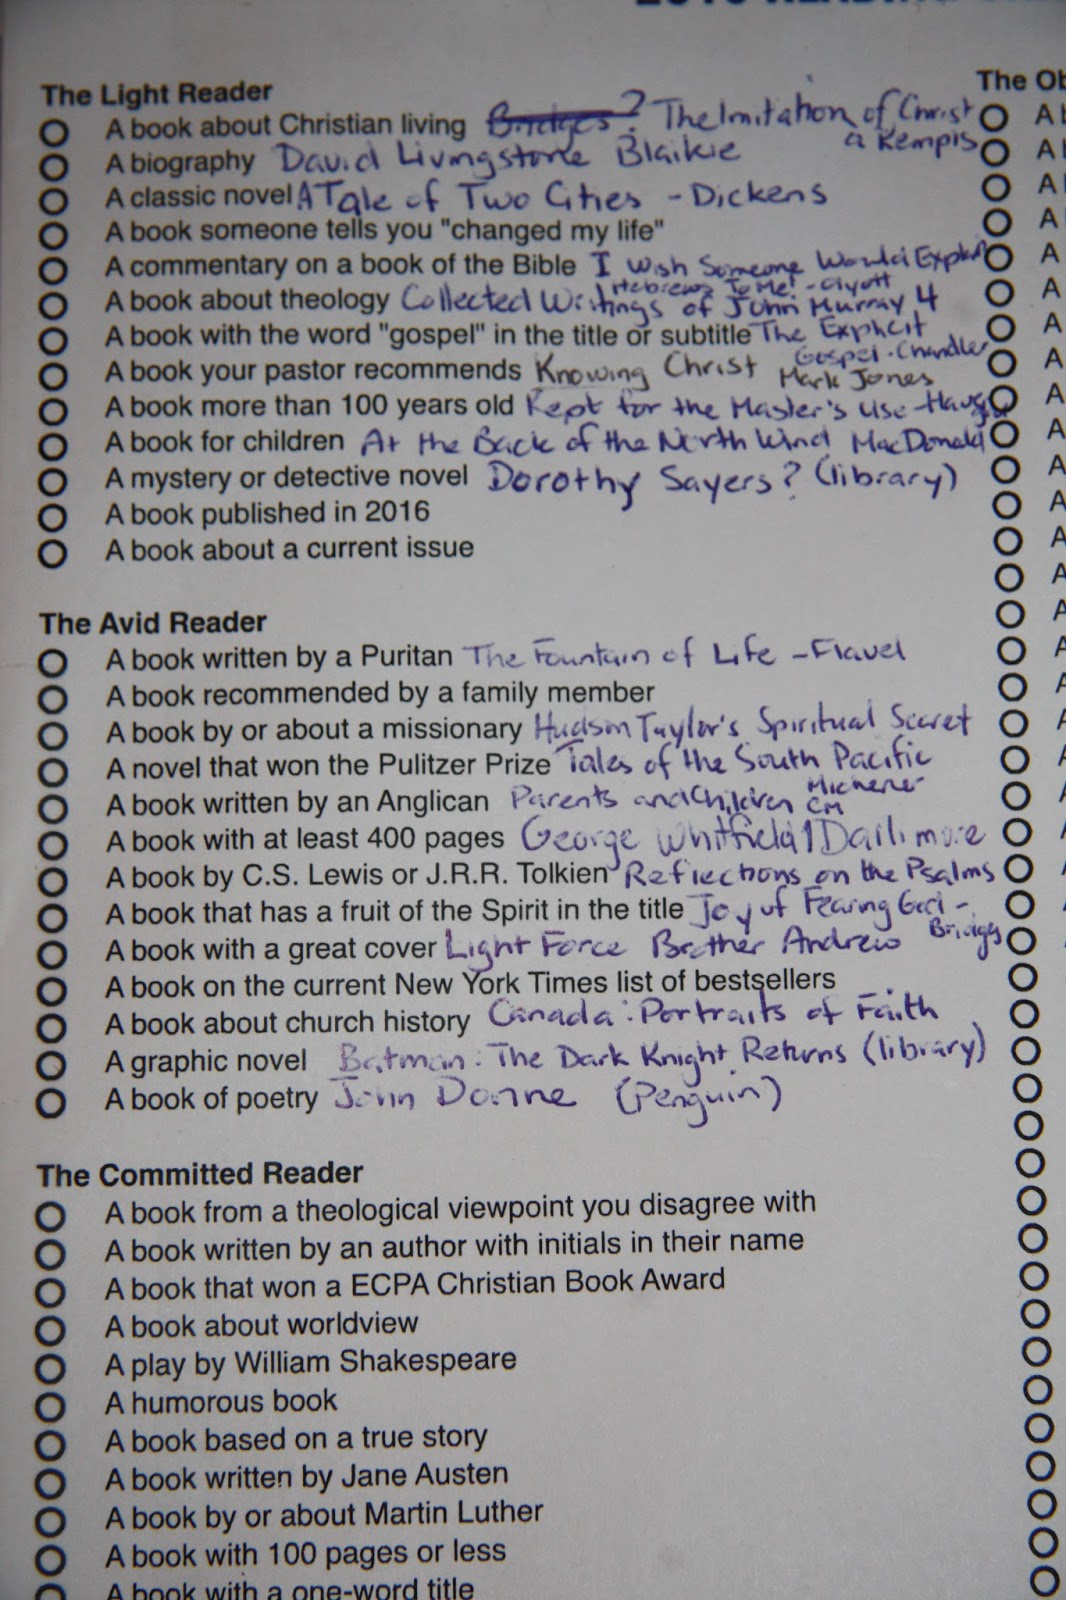 The Light Reader
A book about Christian living Bridges? The Imitation of Christ
a Kempis
A biography David Livingstone Blaikie
A classic novel A Tale of Two Cities - Dickens
A book someone tells you "changed my life"
A commentary on a book of the Bible I Wish Someone Would Explain
Hebrews To Me! - Olyott
A book about theology Collected Writings of John Murray 4
A book with the word "gospel" in the title or subtitle The Explicit
Gospel - Chandler
A book your pastor recommends Knowing Christ Mark Jones
A book more than 100 years old Kept for the Master's Use -
A book for children At the Back of the North Wind MacDonald
A mystery or detective novel Dorothy Sayers? (library)
A book published in 2016
A book about a current issue
The Avid Reader
A book written by a Puritan The Fountain of Life - Flavel
A book recommended by a family member
A book by or about a missionary Hudson Taylor's Spiritual Secret
A novel that won the Pulitzer Prize Tales of the South Pacific
Michener
A book written by an Anglican Parents and Children CM
A book with at least 400 pages George Whitfield 1 Dallimore
A book by C.S. Lewis or J.R.R. Tolkien Reflections on the Psalms
A book that has a fruit of the Spirit in the title Joy of Fearing God -
Bridges
A book with a great cover Light Force Brother Andrew
A book on the current New York Times list of bestsellers
A book about church history Canada: Portraits of Faith
A graphic novel Batman: The Dark Knight Returns (library)
A book of poetry John Donne (Penguin)
The Committed Reader
A book from a theological viewpoint you disagree with
A book written by an author with initials in their name
A book that won a ECPA Christian Book Award
A book about worldview
A play by William Shakespeare
A humorous book
A book based on a true story
A book written by Jane Austen
A book by or about Martin Luther
A book with 100 pages or less
A book with a one-word title